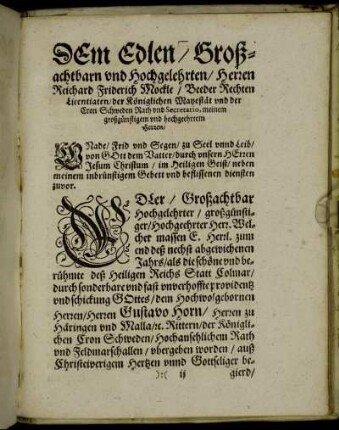 DEm Edlen / Groß-
achtbarn vnd Hochgelehrten / Herren
Reichard Friderich Mockle / Beeder Rechten
Licentiaten / der Königlichen Mayestät vnd der
Cron Schweden Rath vnd Secretario, meinem
großgünstigen vnd hochgeehrtem
Herren /
GNade / Frid vnd Segen / zu Seel vnnd Leib /
von GOtt dem Vatter / durch vnsern HErren
Jesum Christum / im Heiligen Geist / neben
meinem inbrünstigem Gebett vnd beflissenen diensten
zuvor.
EDLer / Großachtbar
Hochgelehrter / großgünsti-
ger / Hochgeehrter Herr. Wel-
cher massen E. Herrl. zum
end deß nechst abgewichenen
Jahrs / als die schöne vnd be-
rühmte deß Heiligen Reichs Statt Colmar /
durch sonderbare vnd fast vnverhoffte providentz
vnd schickung GOttes / dem Hochwolgebornen
Herren / Herren Gustavo Horn / Herren zu
Häringen vnd Malla / tt. Rittern / der Königli-
chen Cron Schweden / Hochansehlichem Rath
vnd Feldmarschallen / vbergeben worden / auß
Christeiverigem Hertzen vnnd Gottseliger be-
):( ij gierd /